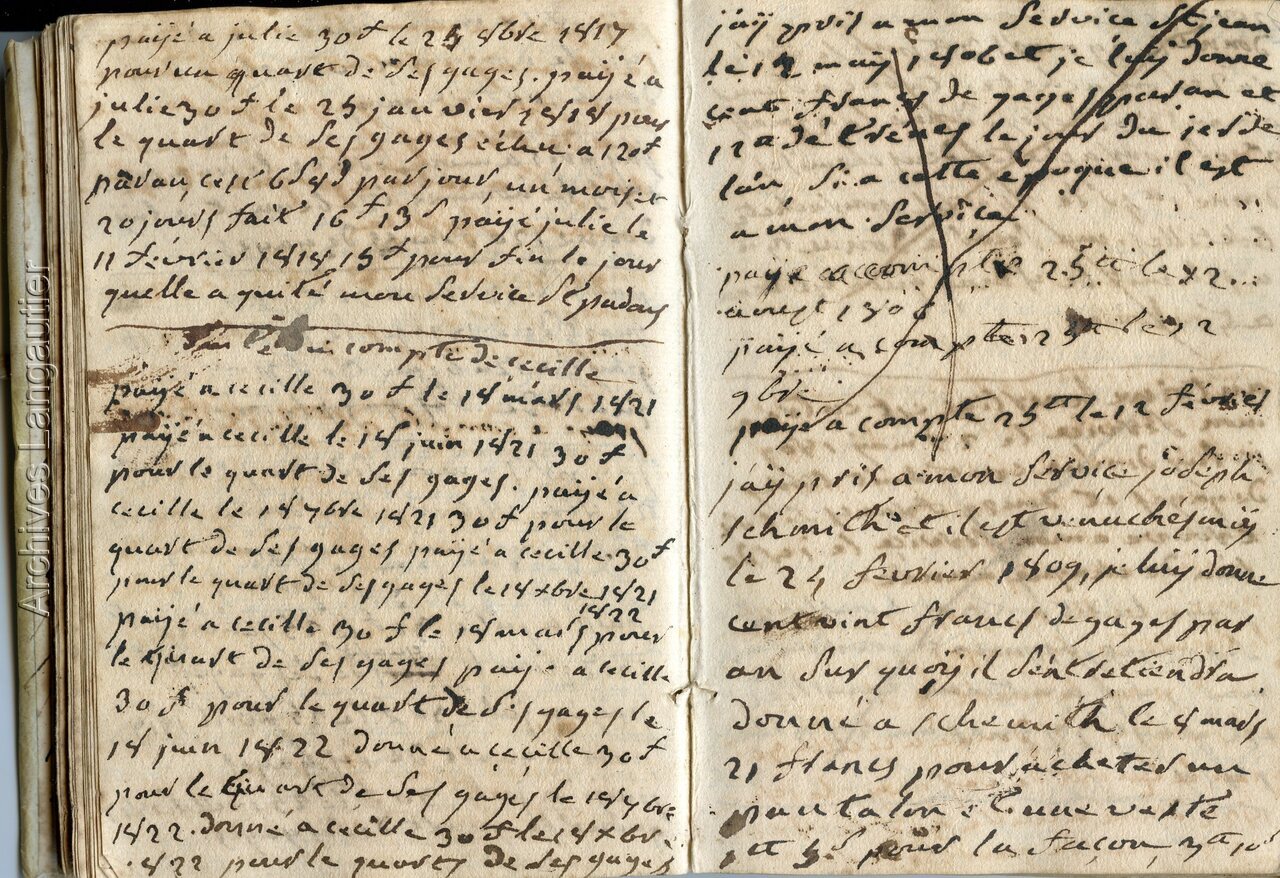 payé a julie 30f le 25 8bre 1817
pour un quart de ses gages. payé a
julie 30f le 25 janvier 1818 pour
le quart de ses gages échu a 120f
par an, cest 6s 8d par jour, un mois et
20 jours fait 16f 13s payé julie le
11 février 1818 15f pour fin le jour
quelle a quité mon service
compte de cecille
payé a cecille 30f le 18 mars 1821
payé a cecille le 18 juin 1821 30f
pour le quart de ses gages. payé a
cecille le 18 7bre 1821 30f pour le
quart de ses gages payé a cecille 30f
pour le quart de ses gages le 18 xbre 1821
1822
payé a cecille 30f le 18 mars pour
le quart de ses gages payé a cecille
30f pour le quart de ses gages le
18 juin 1822 donné a cecille 30f
pour le quart de ses gages le 18 7bre
1822. donné a cecille 30f le 18 xbre
1822 pour le quart de ses gages
jáy pris a mon service St jean
le 12 may 1806 et je luy donne
cent francs de gages par an et
12tt détrénes le jour du jer de
lán si a cette époque il est
a mon service
payé a compte 25tt le 12
aoust 1806
payé a compte 25tt le 12
9bre
payé a compte 25tt le 12 février
jáy pris a mon service joseph
schmith et il est venu chés moy
le 24 fevrier 1809, je luy donne
cent vint francs de gages par
an sur quoy il séntretiendra
donné a schemith le 8 mars
21 francs pour ácheter un
pantalon et une veste
tt 5s pour la façon, 3tt 10s